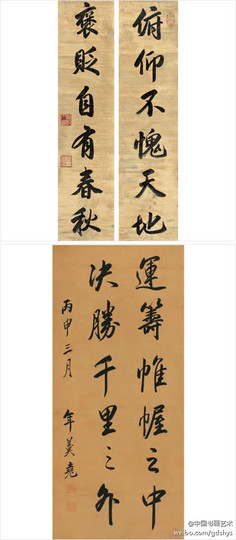 俯仰不愧天地
褒貶自有春秋
運籌帷幄之中
決勝千里之外
丙申三月
年羹堯
@中国书画艺术
weibo.com/gdshys